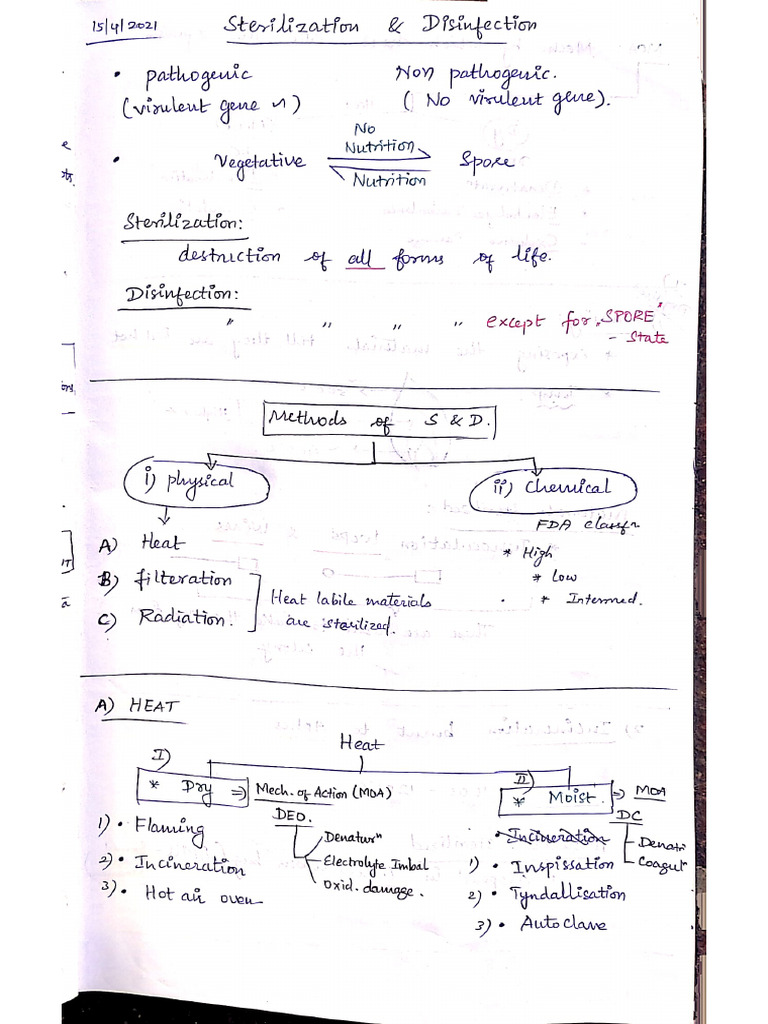 15/4/2021 Sterilization & Disinfection
• pathogenic Non pathogenic.
(virulent gene ம்) ( No virulent gene).
No
Nutrition
• Vegetative Spore
Nutrition
Sterilization:
destruction of all forms of life.
Disinfection:
" " " " except for "SPORE"
- State
Methods of S & D.
i) physical ii) Chemical
FDA Classfn
A) Heat * High
B) filteration * Low
Heat labile materials * Intermed.
C) Radiation. are sterilized.
A) HEAT
Heat
I) II)
* Dry => Mech. of Action (MOA) * Moist. => MOA
DEO. DC
1) • Flaming Denaturn • Incineration Denatn
2) • Incineration Electrolyte Imbal 1) • Inspissation Coagutn
3) • Hot air oven Oxid. damage. 2) • Tyndallisation
3) • Autoclave